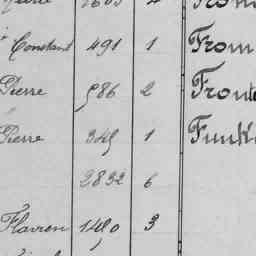 Constant 491 1 From
Pierre 586 2 Front
Pierre 345 1 Funk
2832 6
Flavien 1480 3